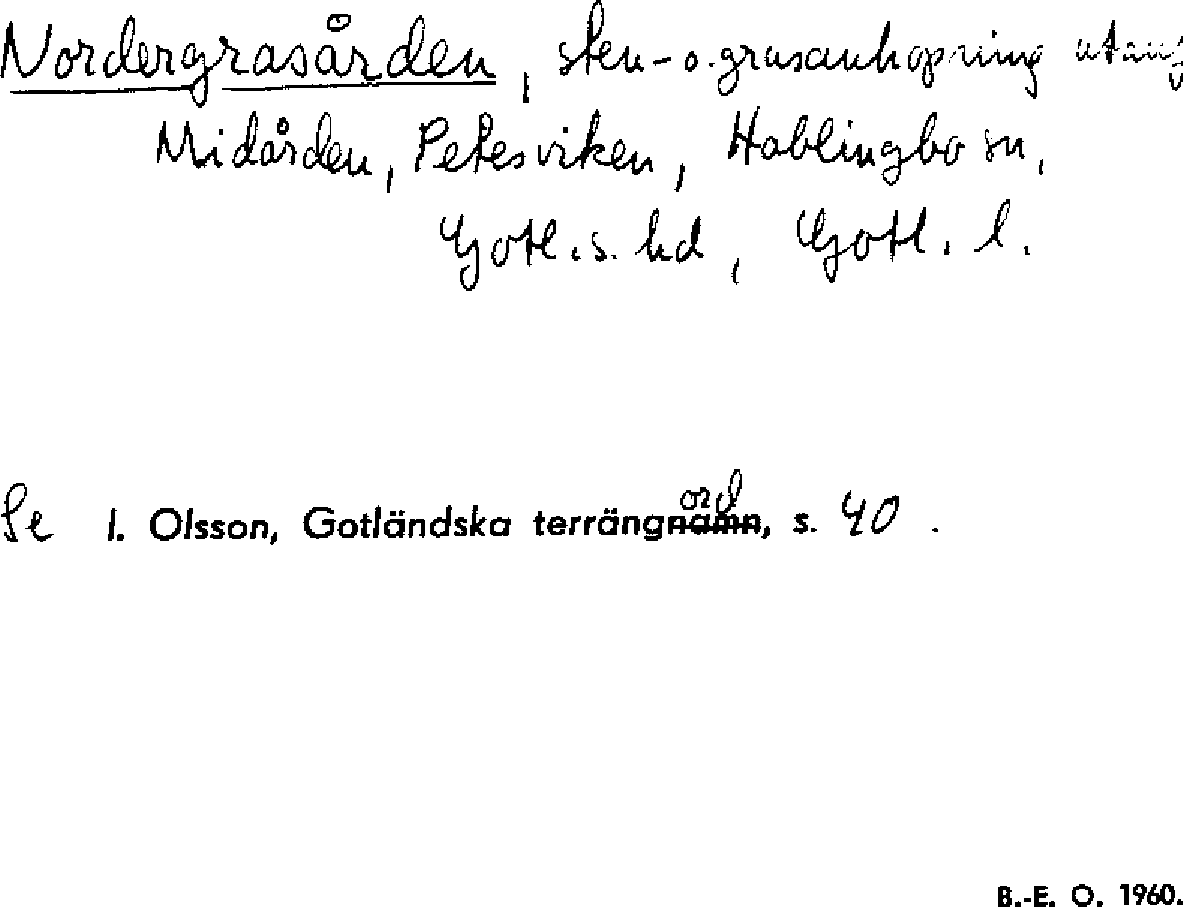 Nordergrasården, sten- o. grusanhopning utanf
Midården, Petesviken, Hablingbo sn,
Gotl. s. hd, Gotl. l.
Se I. Olsson, Gotländska terrängord, s. 40.
B.-E. O. 1960.